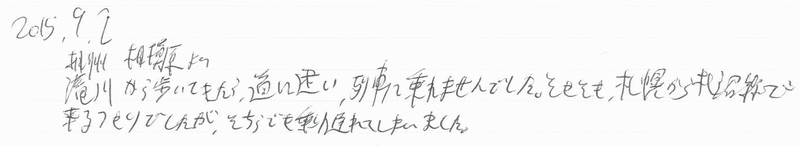 2015.9.2
相模原より
滝川から歩いてきたら、道に迷い、列車に乗れませんでした。そもそも、札幌から札沼線で
来るつもりでしたが、そちらでも乗り遅れてしまいました。